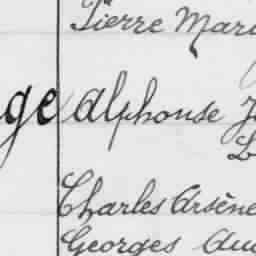 Pierre Mari
ge alphonse
Charles Arsène
Georges Au